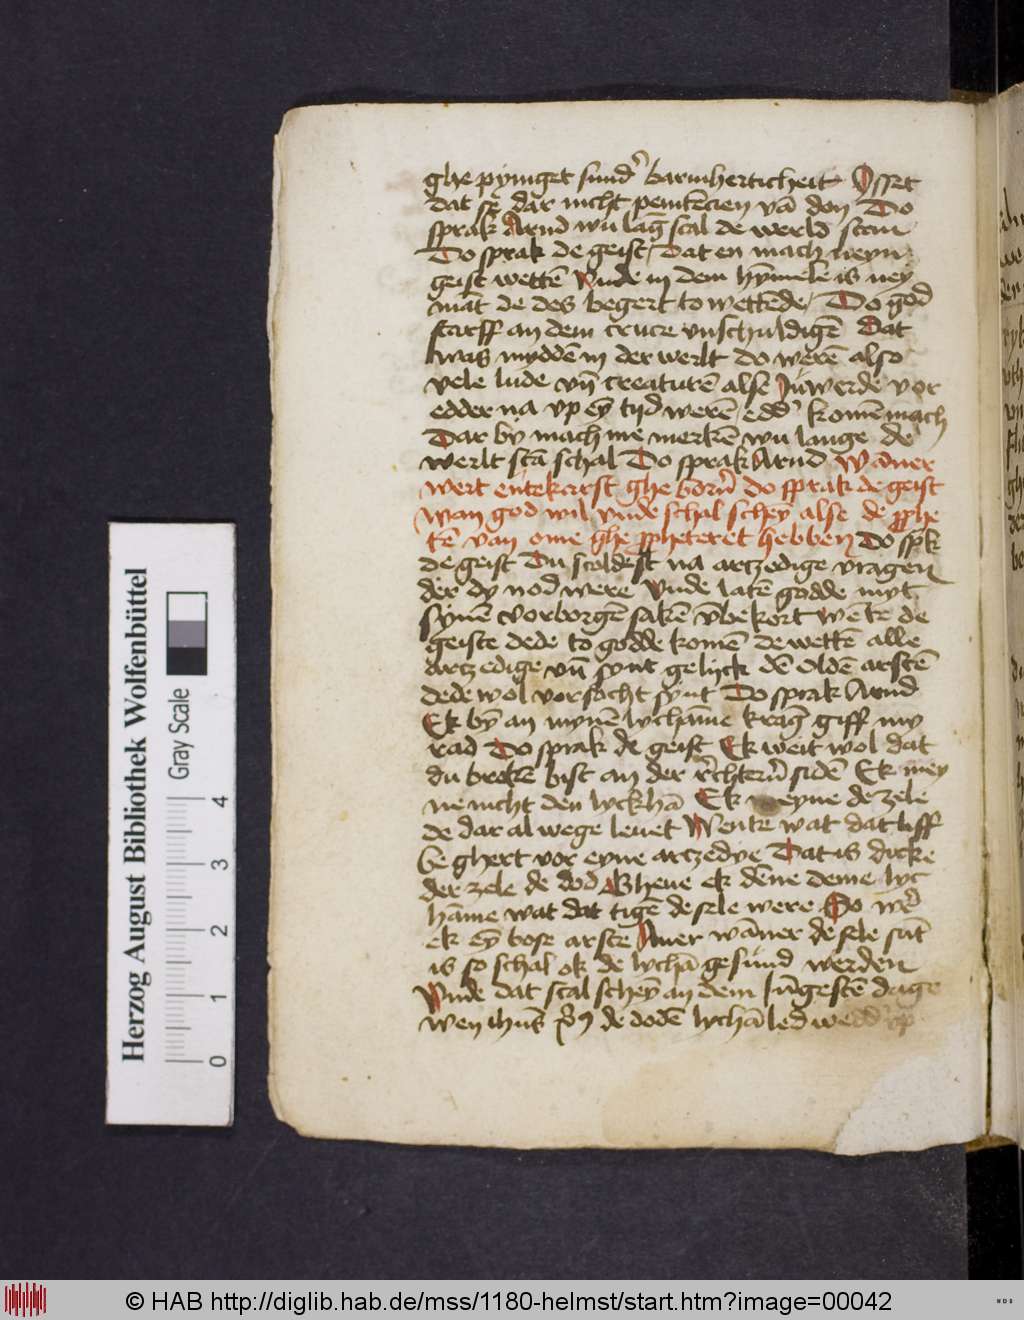 ghe pyniget sund' barmherticheit Offet
dat se dar nicht penitēcien vā don Do
sprak Arnd wu lāg scal de werld stan
Do sprak de geist Dat en mach neyn
geist wettē Vnde in dem hȳmele is ney
māt de des begert to wettēde Do god
starff an dem cruce vnschuldigē Dat
was myddē in der werlt do werē also
vele lude vn̄ creaturē alse Juwerde vor
edder na vp eȳ tijd werē edd' komē mach
Dar by mach me merkē wu lange de
werlt stā schal Do sprak Arnd Wāner
wert entekarst ghe born̄ do sprak de geist
wan god wil vnde schal scheȳ alse de pphe
tē van ome ghe ppheteret hebben Do spk
de geist Du scoldest na arczedige vragen
der dy nod were Vnde latē godde myt
synē vorborgē sakē v̄bekort wēte de
geiste dede to godde komē de wettē alle
arczedige vn̄ synt gelijck dē oldē arstē
dede wol vorsocht synt Do sprak Arnd
Ek bȳ an mynē lychāme krāg giff my
rad Do sprak de geist Ek weit wol dat
du brekē bist an der r̄chtern̄ sidē Ek mey
ne nicht den lyckhā Ek meyne de zele
de dar al wege leuet Wente wat dat liff
be ghert vor eyne arczedye Dat is dicke
der zele de dod Gheue ek dēne deme lyc
hāme wat dat tigē de sele were So we'
ek eȳ bose arste Auer wāner de sele sūt
is so schal ok de lychā gesund werden
Vnde dat scal scheȳ an dem Jūgestē dage
wen ihūs xp̄s de dodē lychā led wedd' vp
Herzog August Bibliothek Wolfenbüttel
Gray Scale
0 1 2 3 4
© HAB http://diglib.hab.de/mss/1180-helmst/start.htm?image=00042